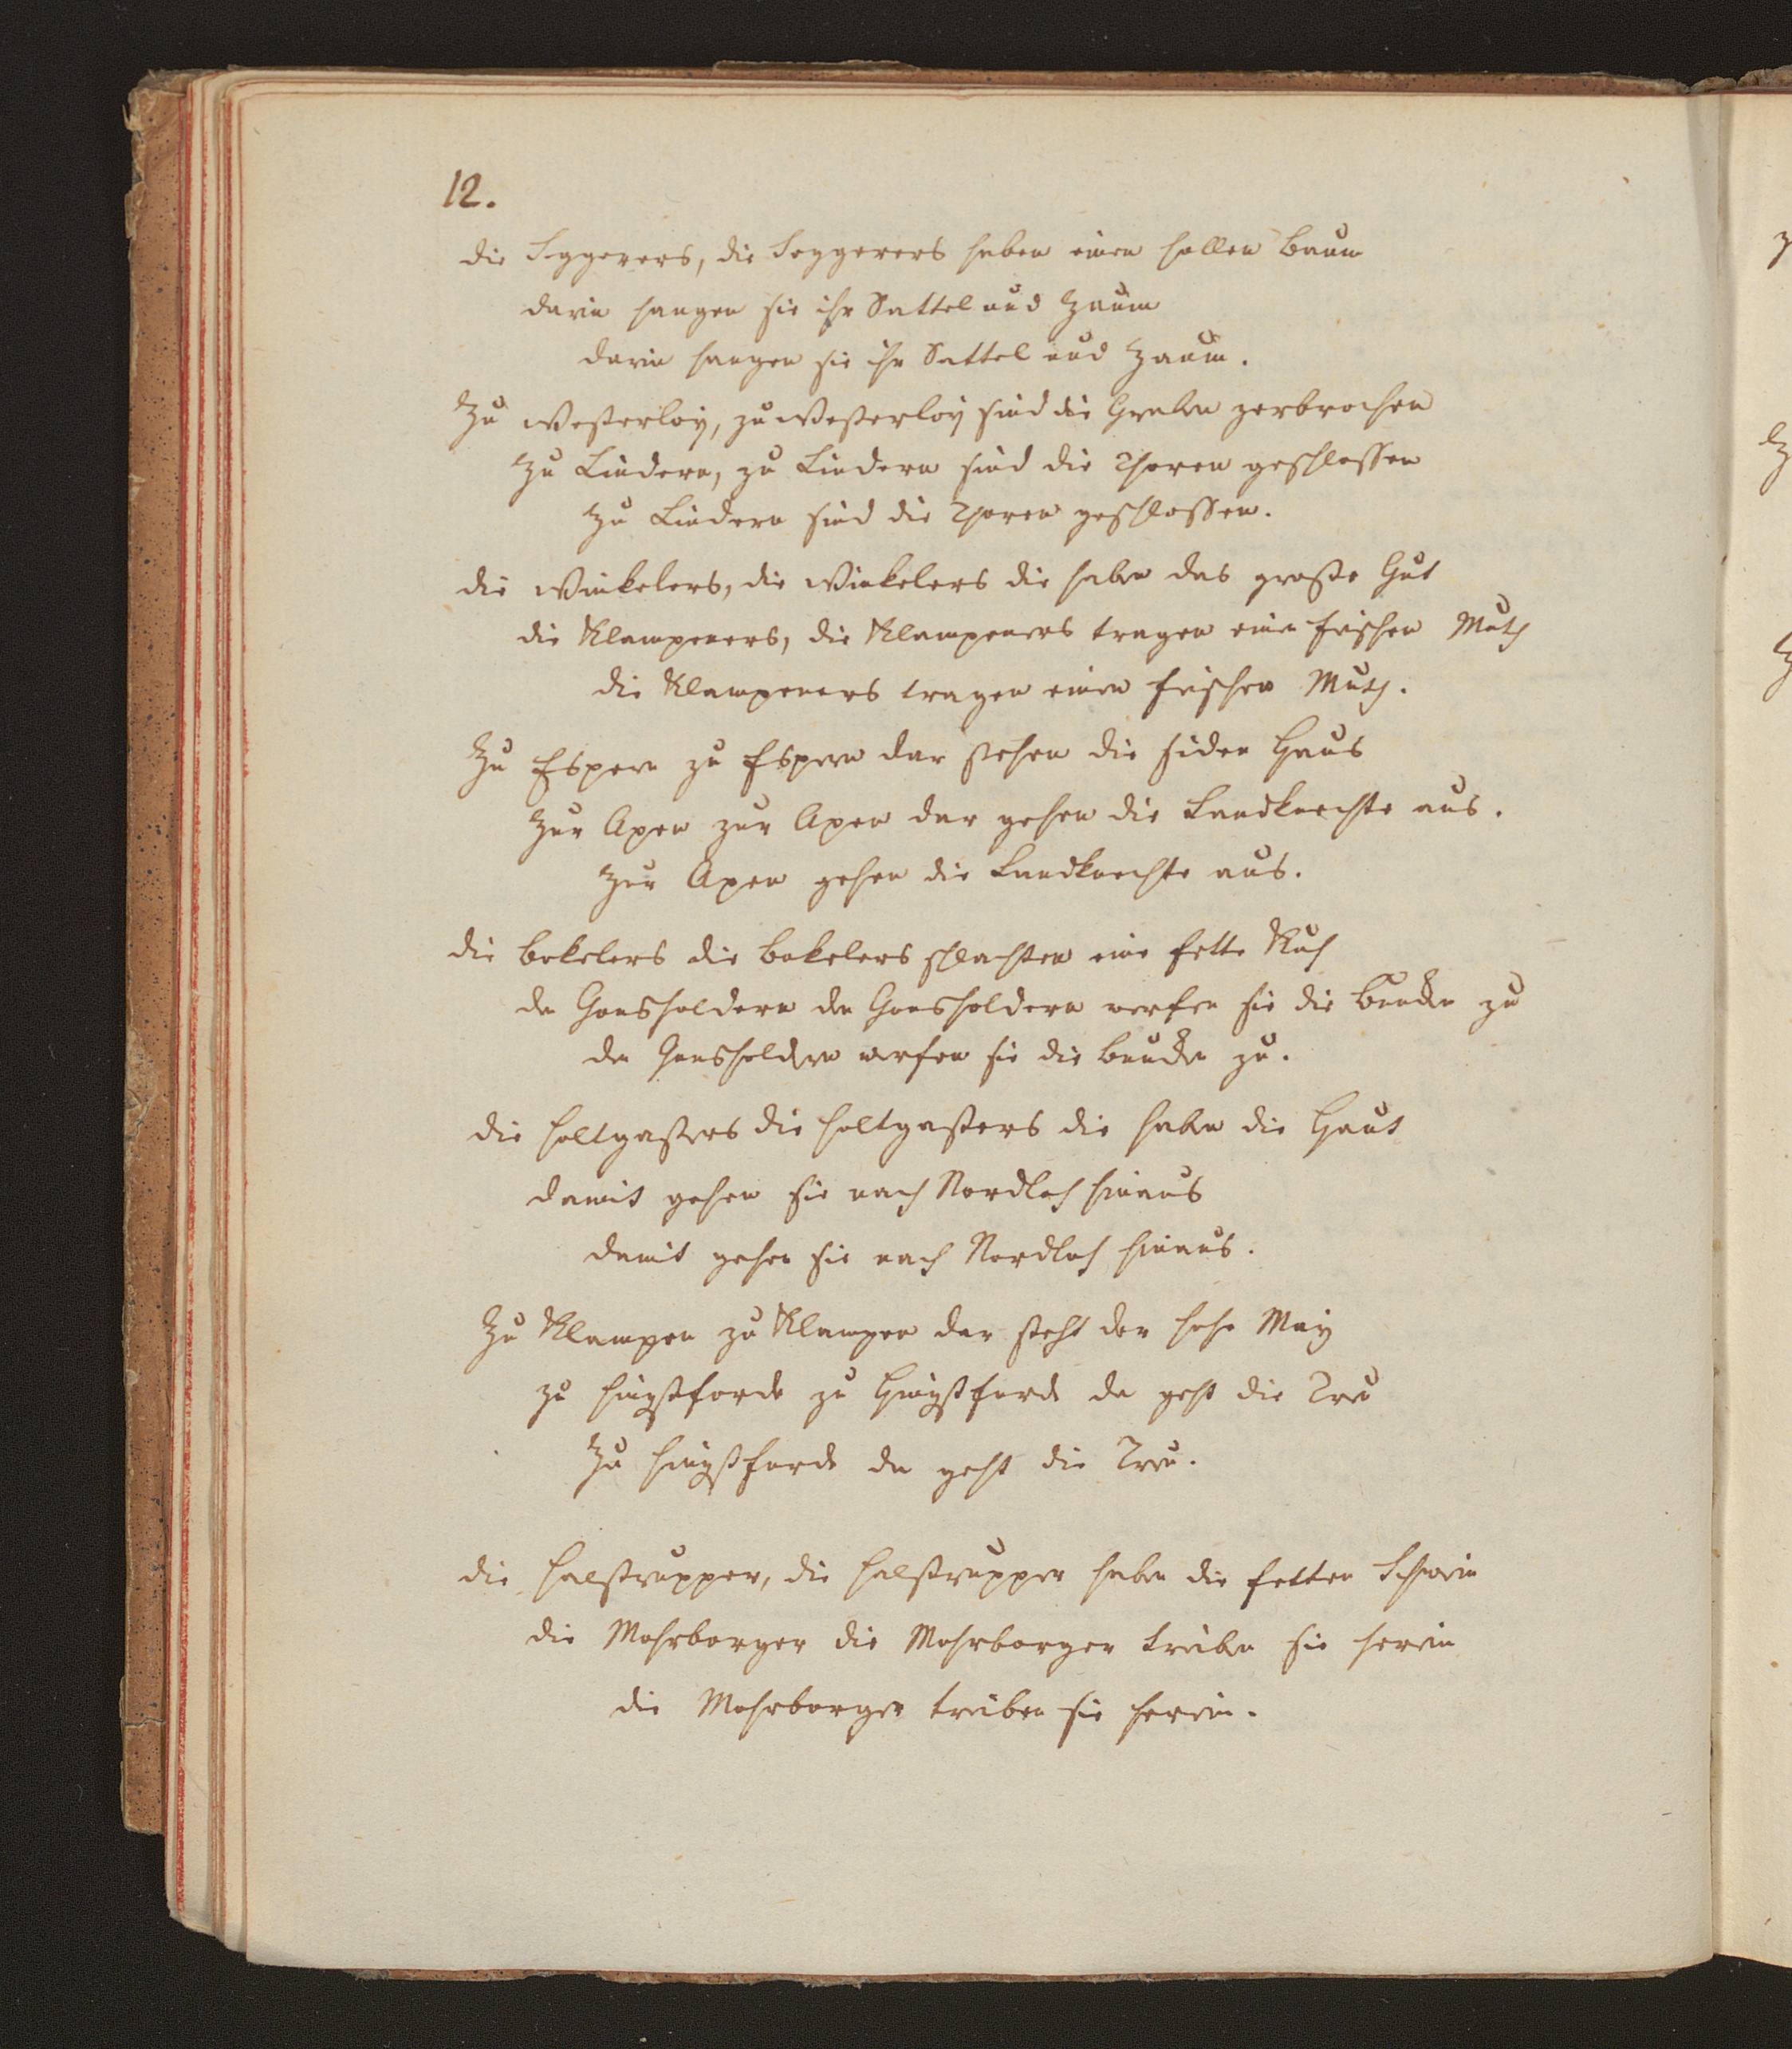 12.
die Seggerers, die Seggerers haben einen hollen Baum
darin hangen sie ihr Sattel und Zaum
darin hangen sie ihr Sattel und Zaum.
Zu Westerloÿ, zu Westerloÿ sind die Graben zerbrochen
Zu Lindern, zu Lindern sind die Thoren geschlossen
Zu Lindern sind die Thoren geschlossen.
die Winkelers, die Winkelers die haben das große Gut
die Klampeners, die Klampeners tragen einen frischen Muth
die Klampeners tragen einen frischen Muth.
Zu Espern zu Espern dar stehen die Haus
Zur Apen zur Apen dar gehen die Landknechte aus.
Zur Apen gehen die Landknechte aus.
die Bokelers die Bokelers schlachten eine fette Kuh
de Gonsholdern de Gonsholdern werfen sie die zu
de Gonsholdern werfen sie die zu.
die Holtgasters die Holtgasters die haben die Haut
damit gehen sie nach Nordloh hinaus
damit gehen sie nach Nordloh hinaus.
Zu Klampen zu Klampen dar steht der hohe Maÿ
zu Hingstforde zu Hingstforde da geht die
Zu Hingstforde da geht die
die Halstrupper, die Halstrupper haben die fetten Schwein
die Mohrborger die Mohrborger treiben sie herein
die Mohrborger treiben sie herein.